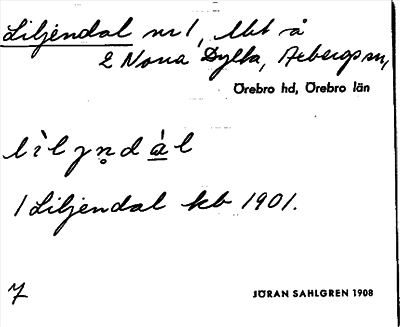 Liljendal nr 1, lht å
2 Norra Dylta, Axbergs sn,
Örebro hd, Örebro län
lìlyṇdàl
1 Liljendal kb 1901.
7
JÖRAN SAHLGREN 1908